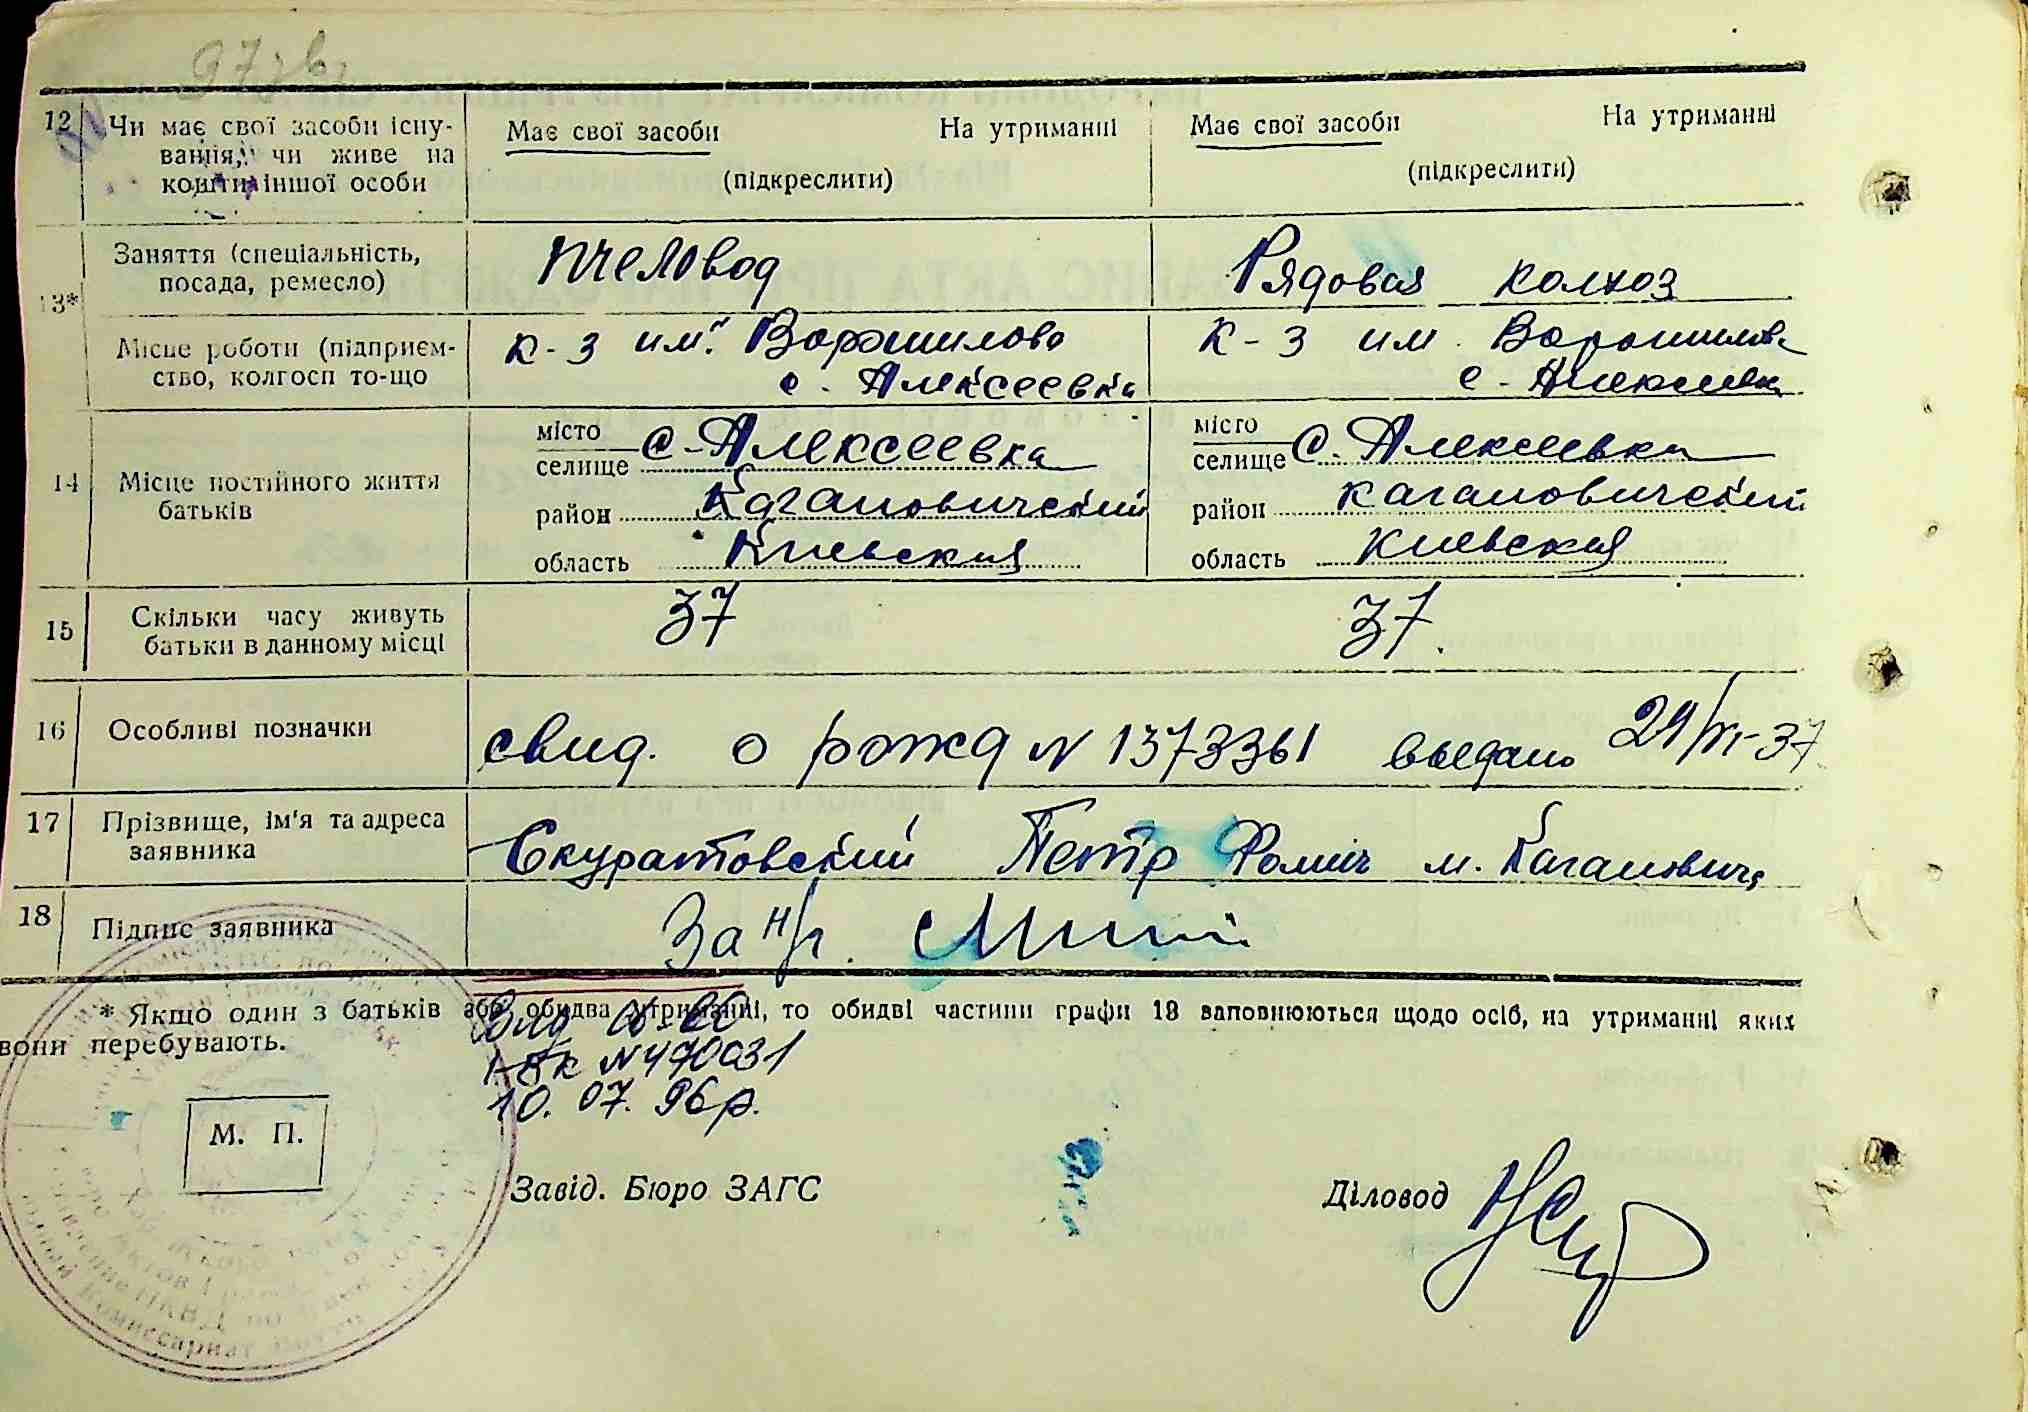 12 Чи має свої засоби існу-
вання, чи живе на
кошти іншої особи
Має свої засоби На утриманні
(підкреслити)
Має свої засоби На утриманні
(підкреслити)
13*
Заняття (спеціальність,
посада, ремесло)
Пчеловод
Рядовая колхоз
Місце роботи (підприєм-
ство, колгосп то-що
к-з им. Ворошилова
с. Алексеевка
к-з им. Ворошилова
с. Алексеевка
14 Місце постійного життя
батьків
місто
селище с. Алексеевка
район Кагановический
область Киевская
місто
селище с. Алексеевка
район Кагановический
область Киевская
15 Скільки часу живуть
батьки в данному місці
37
37
16 Особливі позначки
свид. о рожд N 1373361 выдано 29/VI-37
17 Прізвище, ім'я та адреса
заявника
Скуратовский Петр Фомич м. Кагановича
18 Підпис заявника
За н/г.
* Якщо один з батьків або обидва утриманні, то обидві частини графи 18 заповнюються щодо осіб, на утриманні яких
вони перебувають.
N 490031
10. 07. 96 р.
М. П.
Завід. Бюро ЗАГС
Діловод